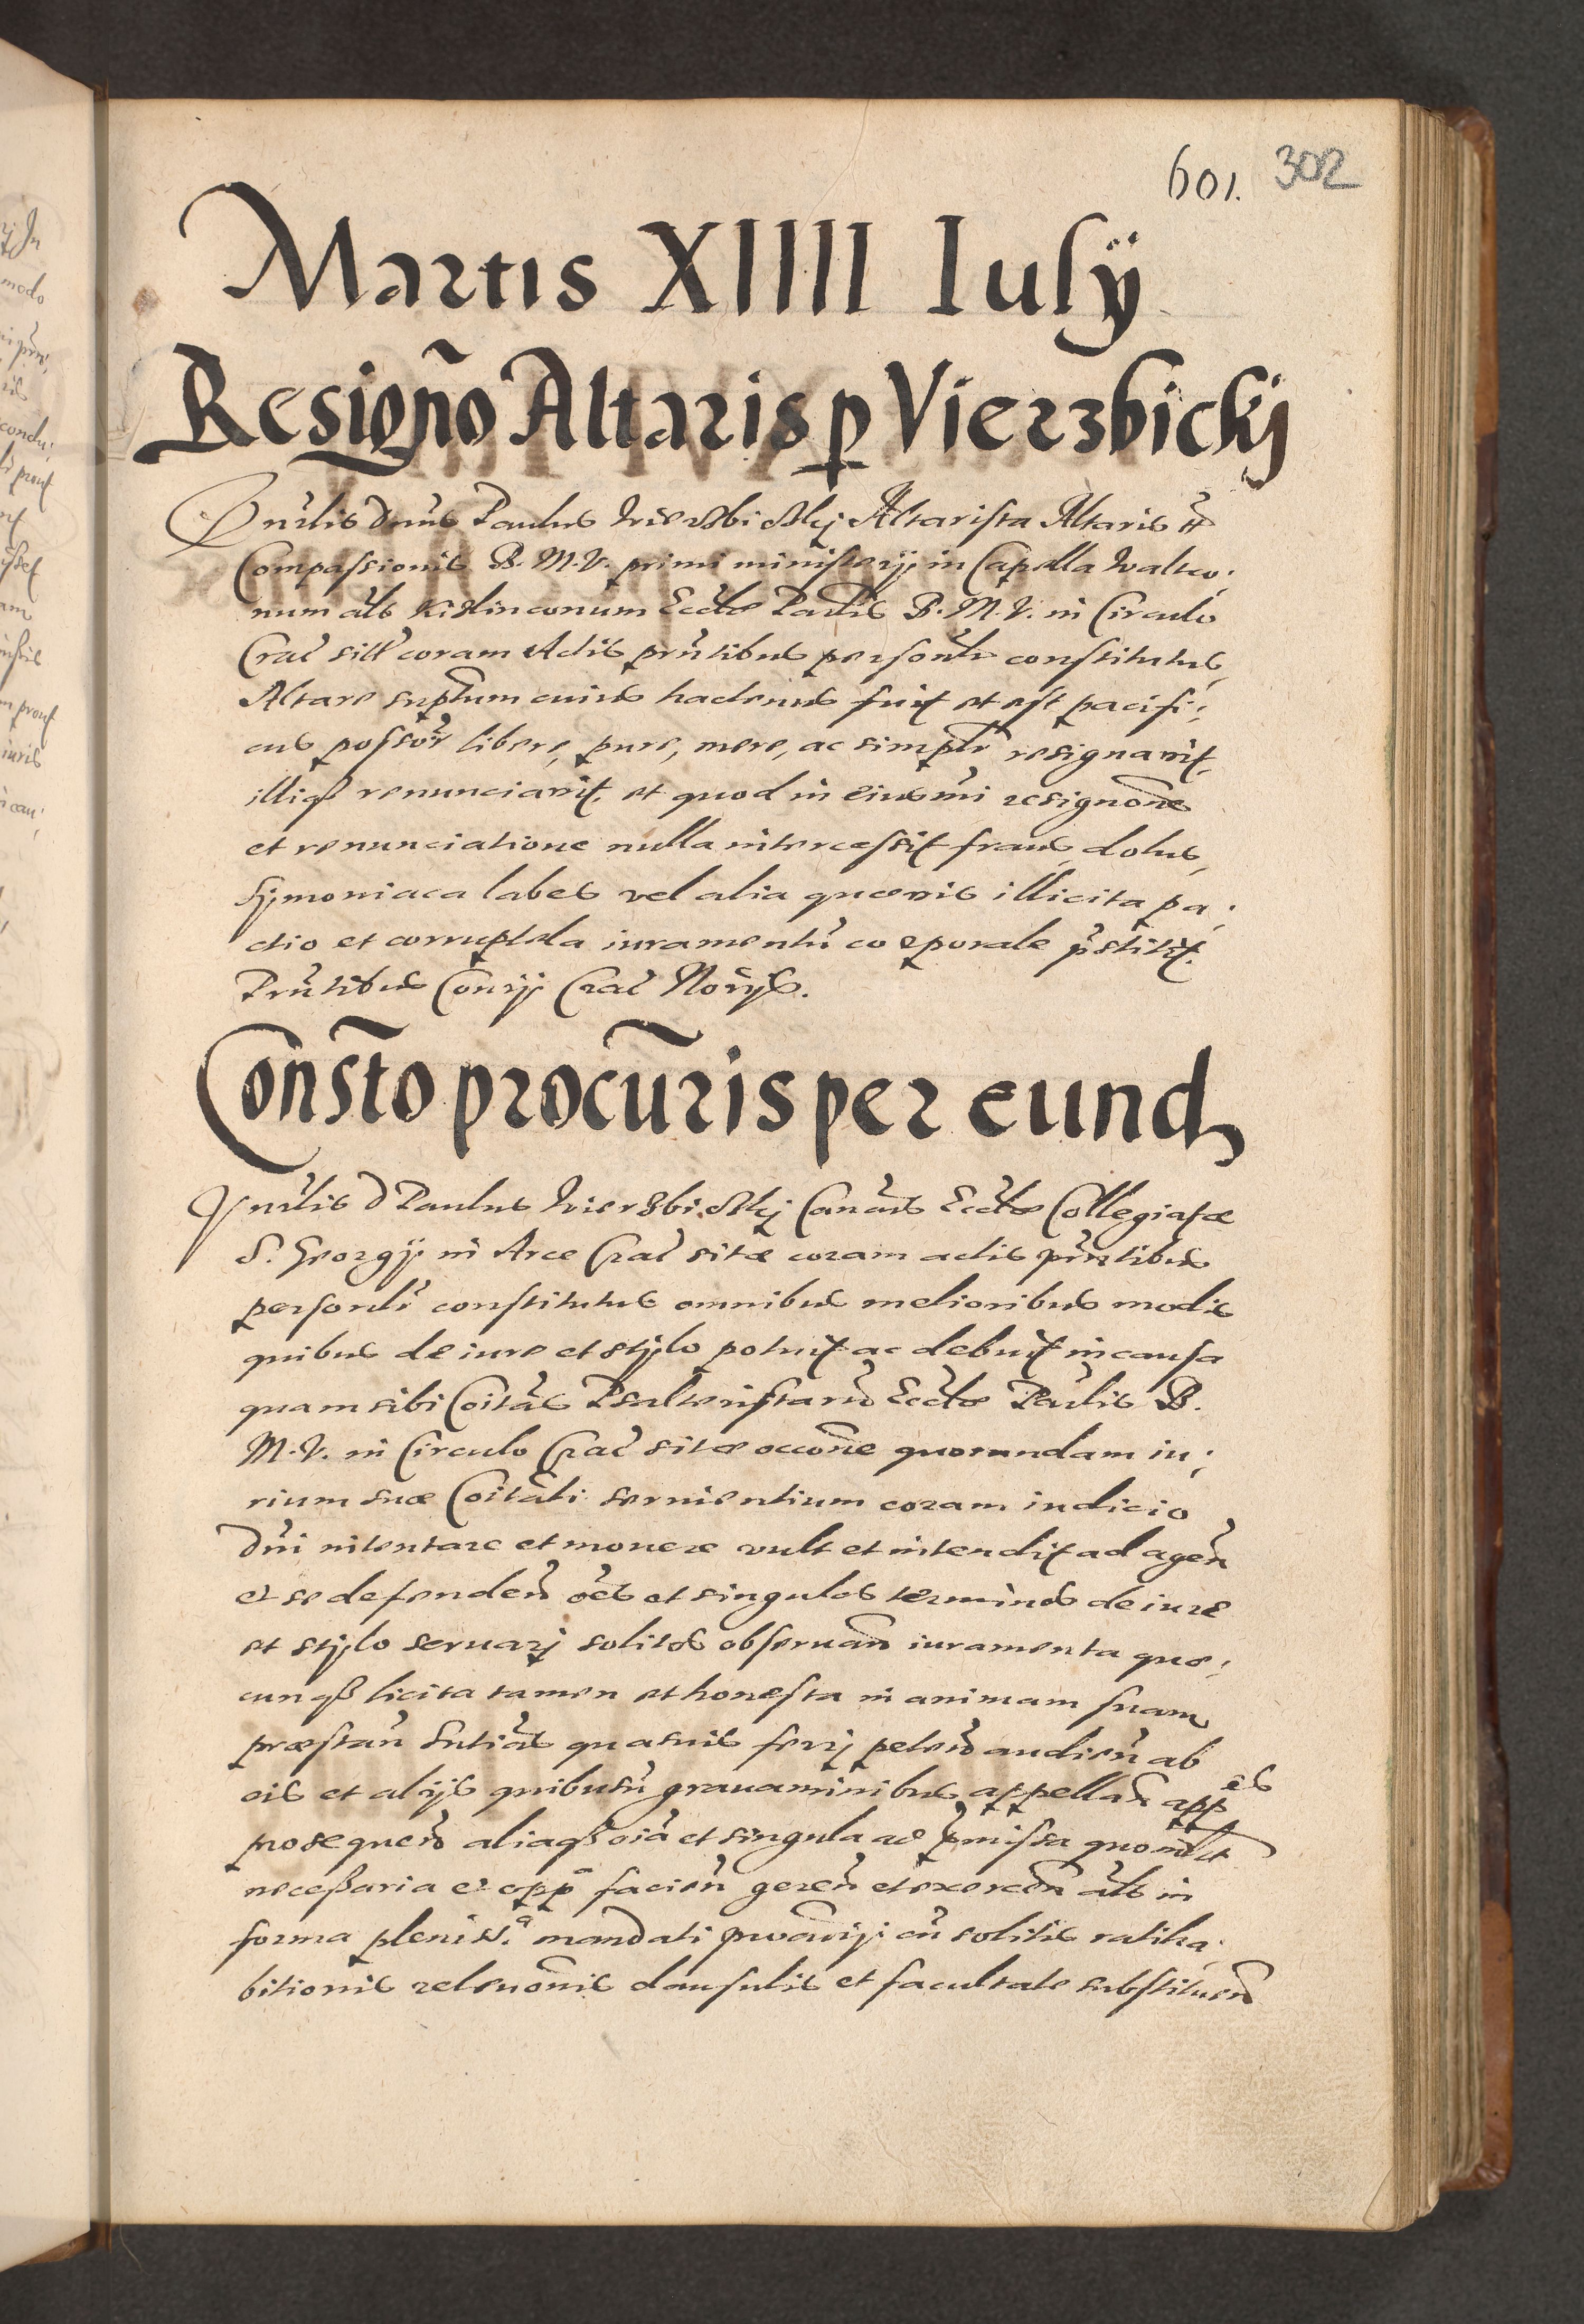 601. 302
Martis XIIII Iulij
Resigno͂ Altaris p Vierzbickj
Vnrlis Dnus Paulus Wierzbickj Altarista Altaris tt
Compassionis B. M. V. primi ministerij in Capella
num als Ecctæ Parlis B. M. V. in Circulo
Crac sitt coram Actis prntibus personlr constitutus,
Altare suptum cuius hactenus fuit et est pacifi:
cus possor libere, pure, mere, ac simpltr resignavit,
illiqз renunciavit, et quod in eiusmi resignone
et renunciatione nulla intercessit fraus, dolus,
symoniaca labes vel alia quævis illicita pa:
ctio et corruptela iuramentu corporale pstitit.
Prntibus Consij Crac Norijs.
Constо procuris per eund
Vnrlis D Paulus Wierzbickj Cancus Ecctæ Collegiatæ
S. Georgij in Arce Crac sitæ coram actis prntibus
personlr constitutus omnibus melioribus modis
quibus de iure et stylo potuit ac debuit in causa
quam sibi Coitas Psalteristaru Ecctæ Parlis B.
M. V. in Circulo Crac sitæ occone quorundam iu:
rium suæ Coitati servientium coram iudicio
Dni intentare et movere vult et intendit ad agen
et se defenden oes et singulos terminos de iure
et stylo servarj solitos observan iuramenta quæ:
cunqз licita tamen et honesta in animam suam
præstan sntias quasvis ferrj peten audien ab
eis et alijs quibusu͂ gravaminibus appellan appes
prosequen aliaqз oia et singula ad pmissa quomlt
necessaria et opp facien geren et exercen als in
forma pleniss.a mandati procurij cu solitis ratiha:
bitionis relevonis clausulis et facultate substituen